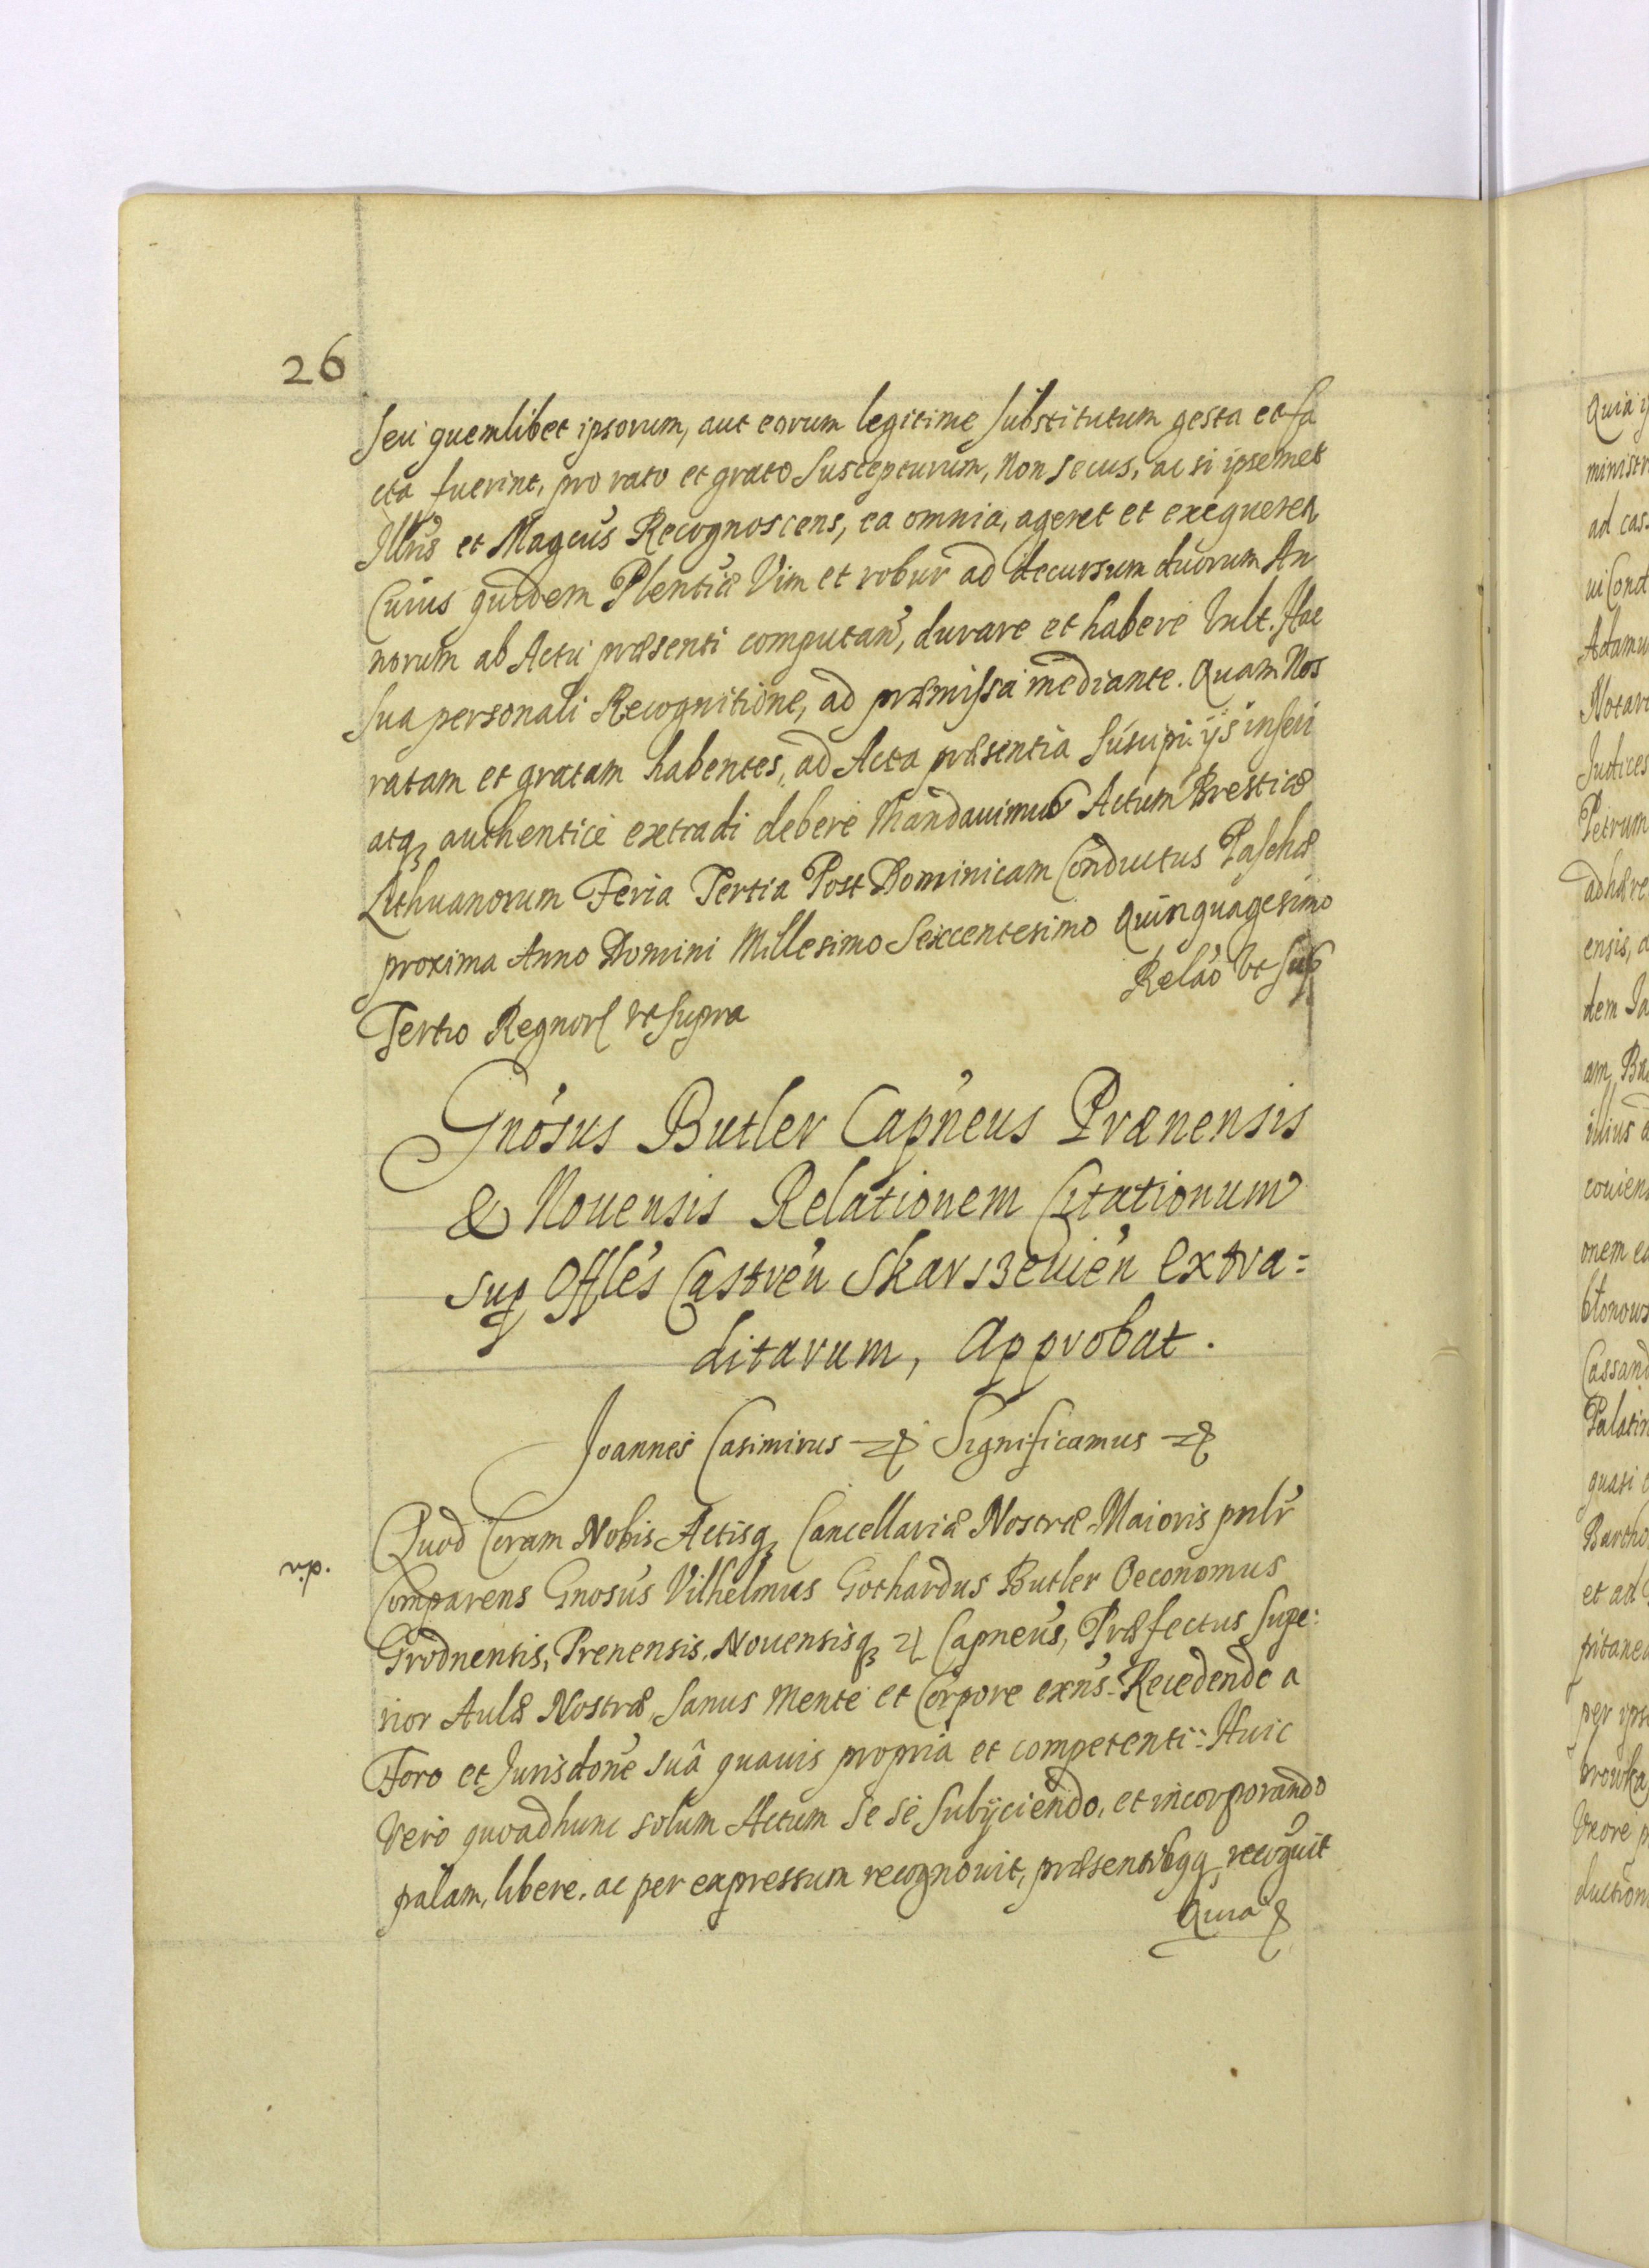 26
seu quemlibet ipsorum, aut eorum legitime substitutum gesta et fa
cta fuerint, pro rato et grato suscepturum, Non secus, ac si ipsemet
Illus et Magcus Recognoscens, ea omnia, ageret et exequeret
Cuius quidem Plentiæ Vim et robur ad decursum duorum An
norum ab Actu præsenti computan, durare et habere Vult. Hac
sua personali Recognitione, ad præmissa mediante. Quam Nos
ratam et gratam habentes, ad Acta præsentia suscipi ijs inseri
atq authentice extradi debere Mandavimus Actum Brestiæ
Lithuanorum Feria Tertia Post Dominicam Conductus Paschæ
proxima Anno Domini Millesimo Sexcentesimo Quinquagesimo
Tertio Regnor Vt supra
Relao Vt sup
Gnosus Butler Capneus Prænensis
& Nouensis Relationem Citationum
sup Offles Castren Skarszevien extra=
ditarum, Approbat.
Joannes Casimirus Significamus
Quod Coram Nobis Actisq Cancellariæ Nostræ Maioris pnlr
r.p.
Comparens Gnosus Vilhelmus Gothardus Butler Oeconomus
Grodnensis, Prenensis, Nouensisq Capneus, Præfectus Supe:
rior Aulæ Nostræ, Sanus Mente et Corpore exns. Recedendo a
Foro et Jurisdone suâ quavis propria et competenti: Huic
Vero quoadhunc solum Actum se se subijciendo, et incorporando
palam, libere, ac per expressum recognouit, præsentibqq recoguit
Quia
Quia
ministr
ad cas
Adamu
Notari
Judices
Petrum
adhære
ensis, a
dem Ja
am Bu
onem
Cassand
Palatin
quasi
Bartho
et ad
pitane